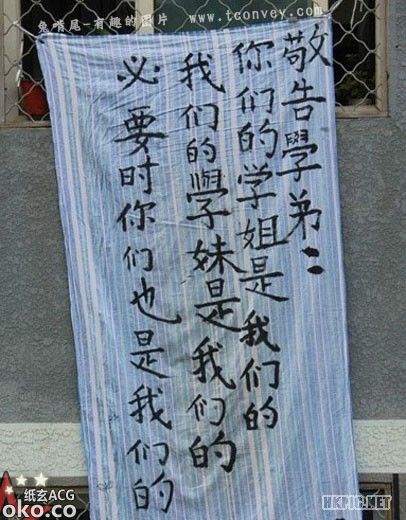 兔啃尾-有趣的图片
www.tconvey.com
敬告學弟:
你们的学姐是我们的
我们的學妹是我们的
必要时你们也是我们的
纸玄ACG
oko.co
HKPIC.NET